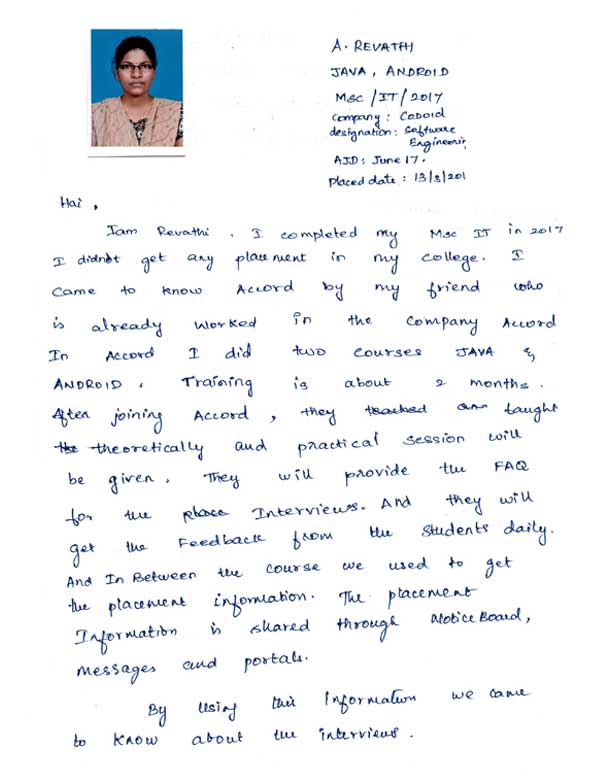 A. REVATHI
JAVA, ANDROID
MSC /IT/ 2017
Company : CODOID
designation : Software
Engineer,
AJD : June 17.
Placed date : 13/8/201
Hai ,
Iam Revathi . I completed my MSC IT in 2017
I didnot get any placement in my college. I
Came to know Accord by my friend who
is already worked in the company Accord
In Accord I did two courses JAVA &
ANDROID . Training is about 2 months .
After joining Accord , they taught
theoretically and practical session will
be given. They will provide the FAQ
for the Interviews. And they will
get the Feedback from the students daily.
And In Between the course we used to get
the placement information. The placement
Information is shared through Notice Board,
messages and portals.
By Using this Information we came
to know about the interviews .